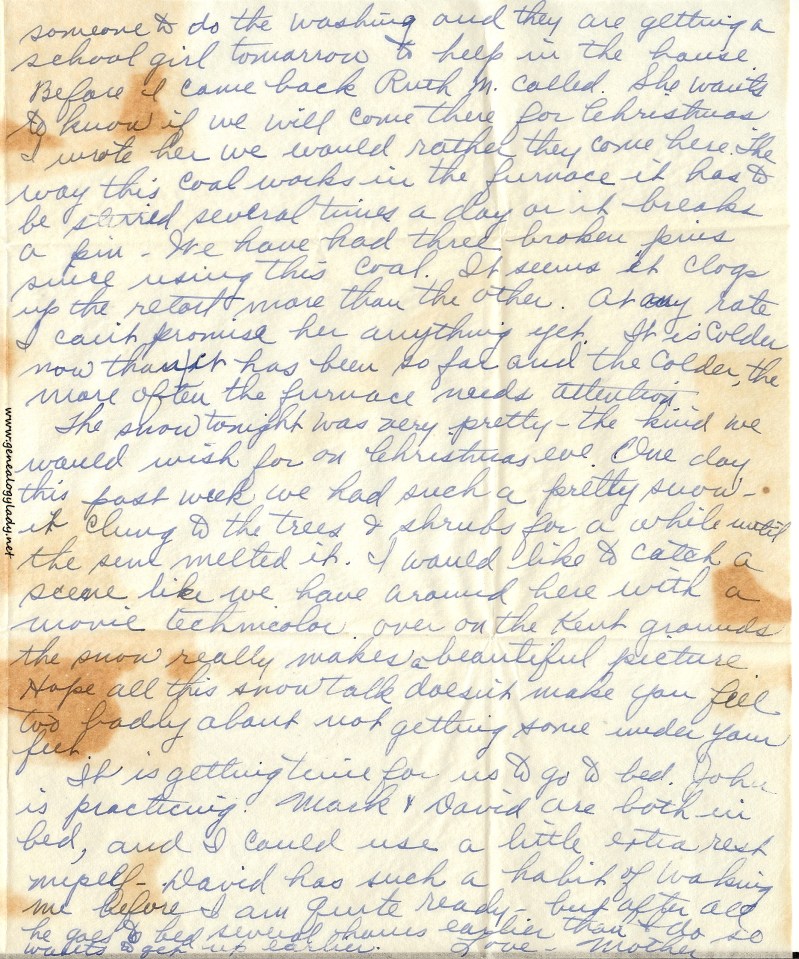 someone to do the washing and they are getting a
school girl tomorrow to help in the house.
Before I came back Ruth M. called. She wants
to know if we will come there for Christmas
I wrote her we would rather they come here. The
way this coal works in the furnace it has to
be stirred several times a day or it breaks
a pin - We have had three broken pins
since using this coal. It seems it clogs
up the retort more than the other. At any rate
I can't promise her anything yet. It is colder
now than it has been so far and the colder, the
more often the furnace needs attention
The snow tonight was very pretty - the kind we
would wish for on Christmas eve. One day
this past week we had such a pretty snow -
it clung to the trees & shrubs for a while until
the sun melted it. I would like to catch a
scene like we have around here with a
movie technicolor over on the Kent grounds
the snow really makes a beautiful picture
Hope all this snow talk doesn't make you feel
too badly about not getting some under your
feet.
It is getting time for us to go to bed. John
is practicing. Mark & David are both in
bed, and I could use a little extra rest
myself - David has such a habit of waking
me before I am quite ready - but after all
he goes to bed several hours earlier than I do so
wants to get up earlier. Love - Mother
www.genealogylady.net